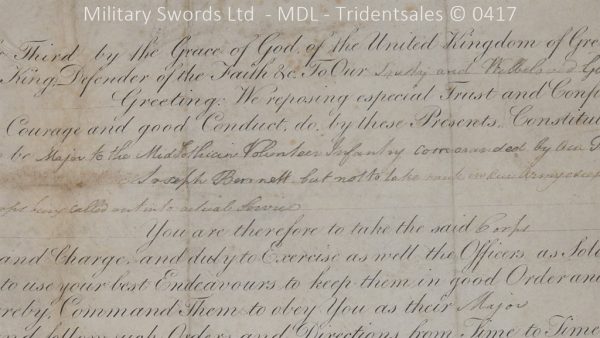 Military Swords Ltd - MDL - Tridentsales © 0417
Third by the Grace of God, of the United Kingdom of Gre
King, Defender of the Faith &c. To Our Trusty and Welbeloved Ge
Greeting: We reposing especial Trust and Conf
Courage and good Conduct, do, by these Presents, Constitu
be Major to the Mid Lothian Volunteer Infantry commanded by our
Joseph Bennett but not to take rank in our Army except
Corps being called out into actual Service
You are therefore to take the said Corps
and Charge, and duly to Exercise as well the Officers as Sol
to use your best Endeavours to keep them in good Order and
ereby, Command Them to obey You as their Major
and follow such Orders and Directions from Time to Time